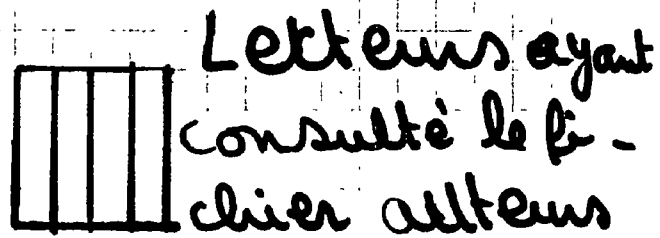 Lecteurs ayant
consulté le fi-
chier auteurs